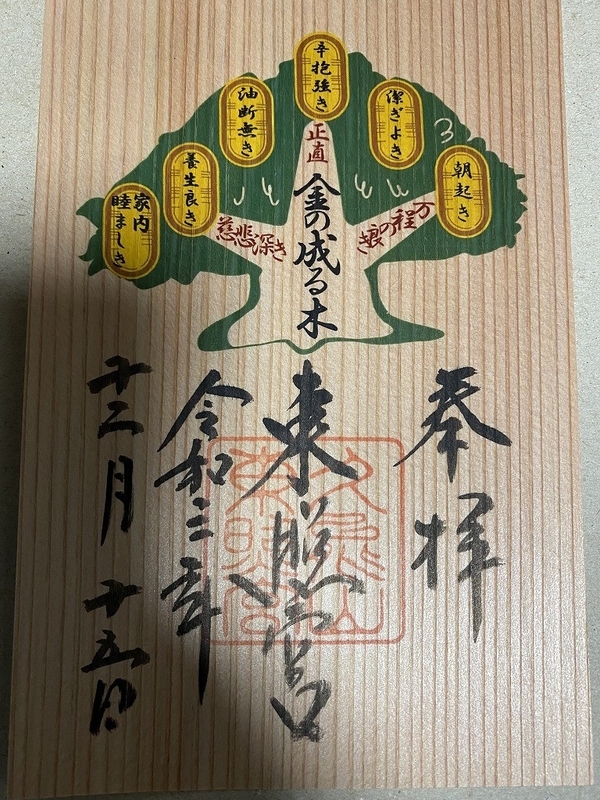 朝起き
潔ぎよき
辛抱強き
油断無き
養生良き
家内
睦ましき
正直
慈悲深き
万程の
金の成る木
奉拝
東照宮
令和三年
十二月十五日
久能山
東照宮